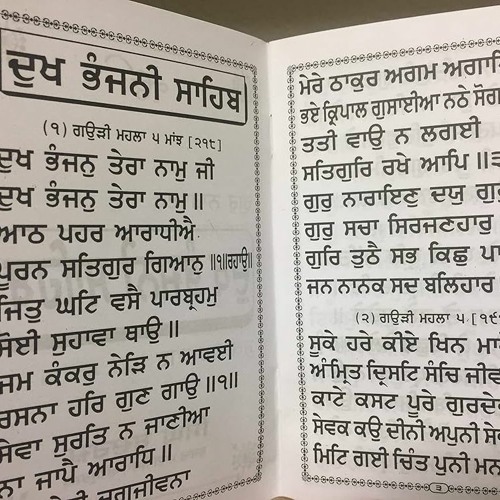 ਦੁਖ ਭੰਜਨੀ ਸਾਹਿਬ
(੧) ਗਉੜੀ ਮਹਲਾ ੫ ਮਾਂਝ [੨੧੮]
ਦੁਖ ਭੰਜਨੁ ਤੇਰਾ ਨਾਮੁ ਜੀ
ਦੁਖ ਭੰਜਨੁ ਤੇਰਾ ਨਾਮੁ ॥
ਆਠ ਪਹਰ ਆਰਾਧੀਐ
ਪੂਰਨ ਸਤਿਗੁਰ ਗਿਆਨੁ ॥੧॥ਰਹਾਉ॥
ਜਿਤੁ ਘਟਿ ਵਸੈ ਪਾਰਬ੍ਰਹਮੁ
ਸੋਈ ਸੁਹਾਵਾ ਥਾਉ ॥
ਜਮ ਕੰਕਰੁ ਨੇੜਿ ਨ ਆਵਈ
ਰਸਨਾ ਹਰਿ ਗੁਣ ਗਾਉ ॥੧॥
ਸੇਵਾ ਸੁਰਤਿ ਨ ਜਾਣੀਆ
ਨਾ ਜਾਪੈ ਆਰਾਧਿ ॥
ਜਗਜੀਵਨਾ
ਮੇਰੇ ਠਾਕੁਰ ਅਗਮ
ਭਏ ਕ੍ਰਿਪਾਲ ਗੁਸਾਈਆ ਨਠੇ ਸੋਗ
ਤਤੀ ਵਾਉ ਨ ਲਗਈ
ਸਤਿਗੁਰਿ ਰਖੇ ਆਪਿ ॥੩
ਗੁਰੁ ਨਾਰਾਇਣੁ ਦਯੁ ਗੁਰੁ
ਗੁਰੁ ਸਚਾ ਸਿਰਜਣਹਾਰੁ
ਗੁਰਿ ਤੁਠੈ ਸਭ ਕਿਛੁ
ਜਨ ਨਾਨਕ ਸਦ ਬਲਿਹਾਰ
(੨) ਗਉੜੀ ਮਹਲਾ ੫ [੧੯੧
ਸੂਕੇ ਹਰੇ ਕੀਏ ਖਿਨ
ਅੰਮ੍ਰਿਤ ਦ੍ਰਿਸਟਿ ਸੰਚਿ
ਕਾਟੇ ਕਸਟ ਪੂਰੇ ਗੁਰਦੇਵ
ਸੇਵਕ ਕਉ ਦੀਨੀ ਅਪੁਨੀ
ਮਿਟਿ ਗਈ ਚਿੰਤ ਪੁਨੀ
੩